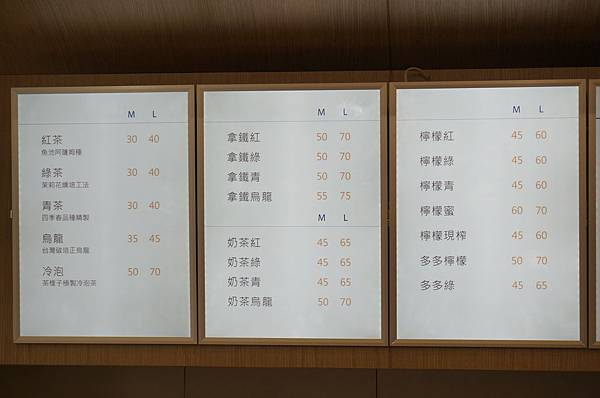 M L
紅茶 30 40
魚池阿薩姆種
綠茶 30 40
茉莉花燻培工法
青茶 30 40
四季春品種精製
烏龍 35 45
台灣碳培正烏龍
冷泡 50 70
茶種子極製冷泡茶
M L
拿鐵紅 50 70
拿鐵綠 50 70
拿鐵青 50 70
拿鐵烏龍 55 75
M L
奶茶紅 45 65
奶茶綠 45 65
奶茶青 45 65
奶茶烏龍 50 70
M L
檸檬紅 45 60
檸檬綠 45 60
檸檬青 45 60
檸檬蜜 60 70
檸檬現榨 45 60
多多檸檬 50 70
多多綠 45 65